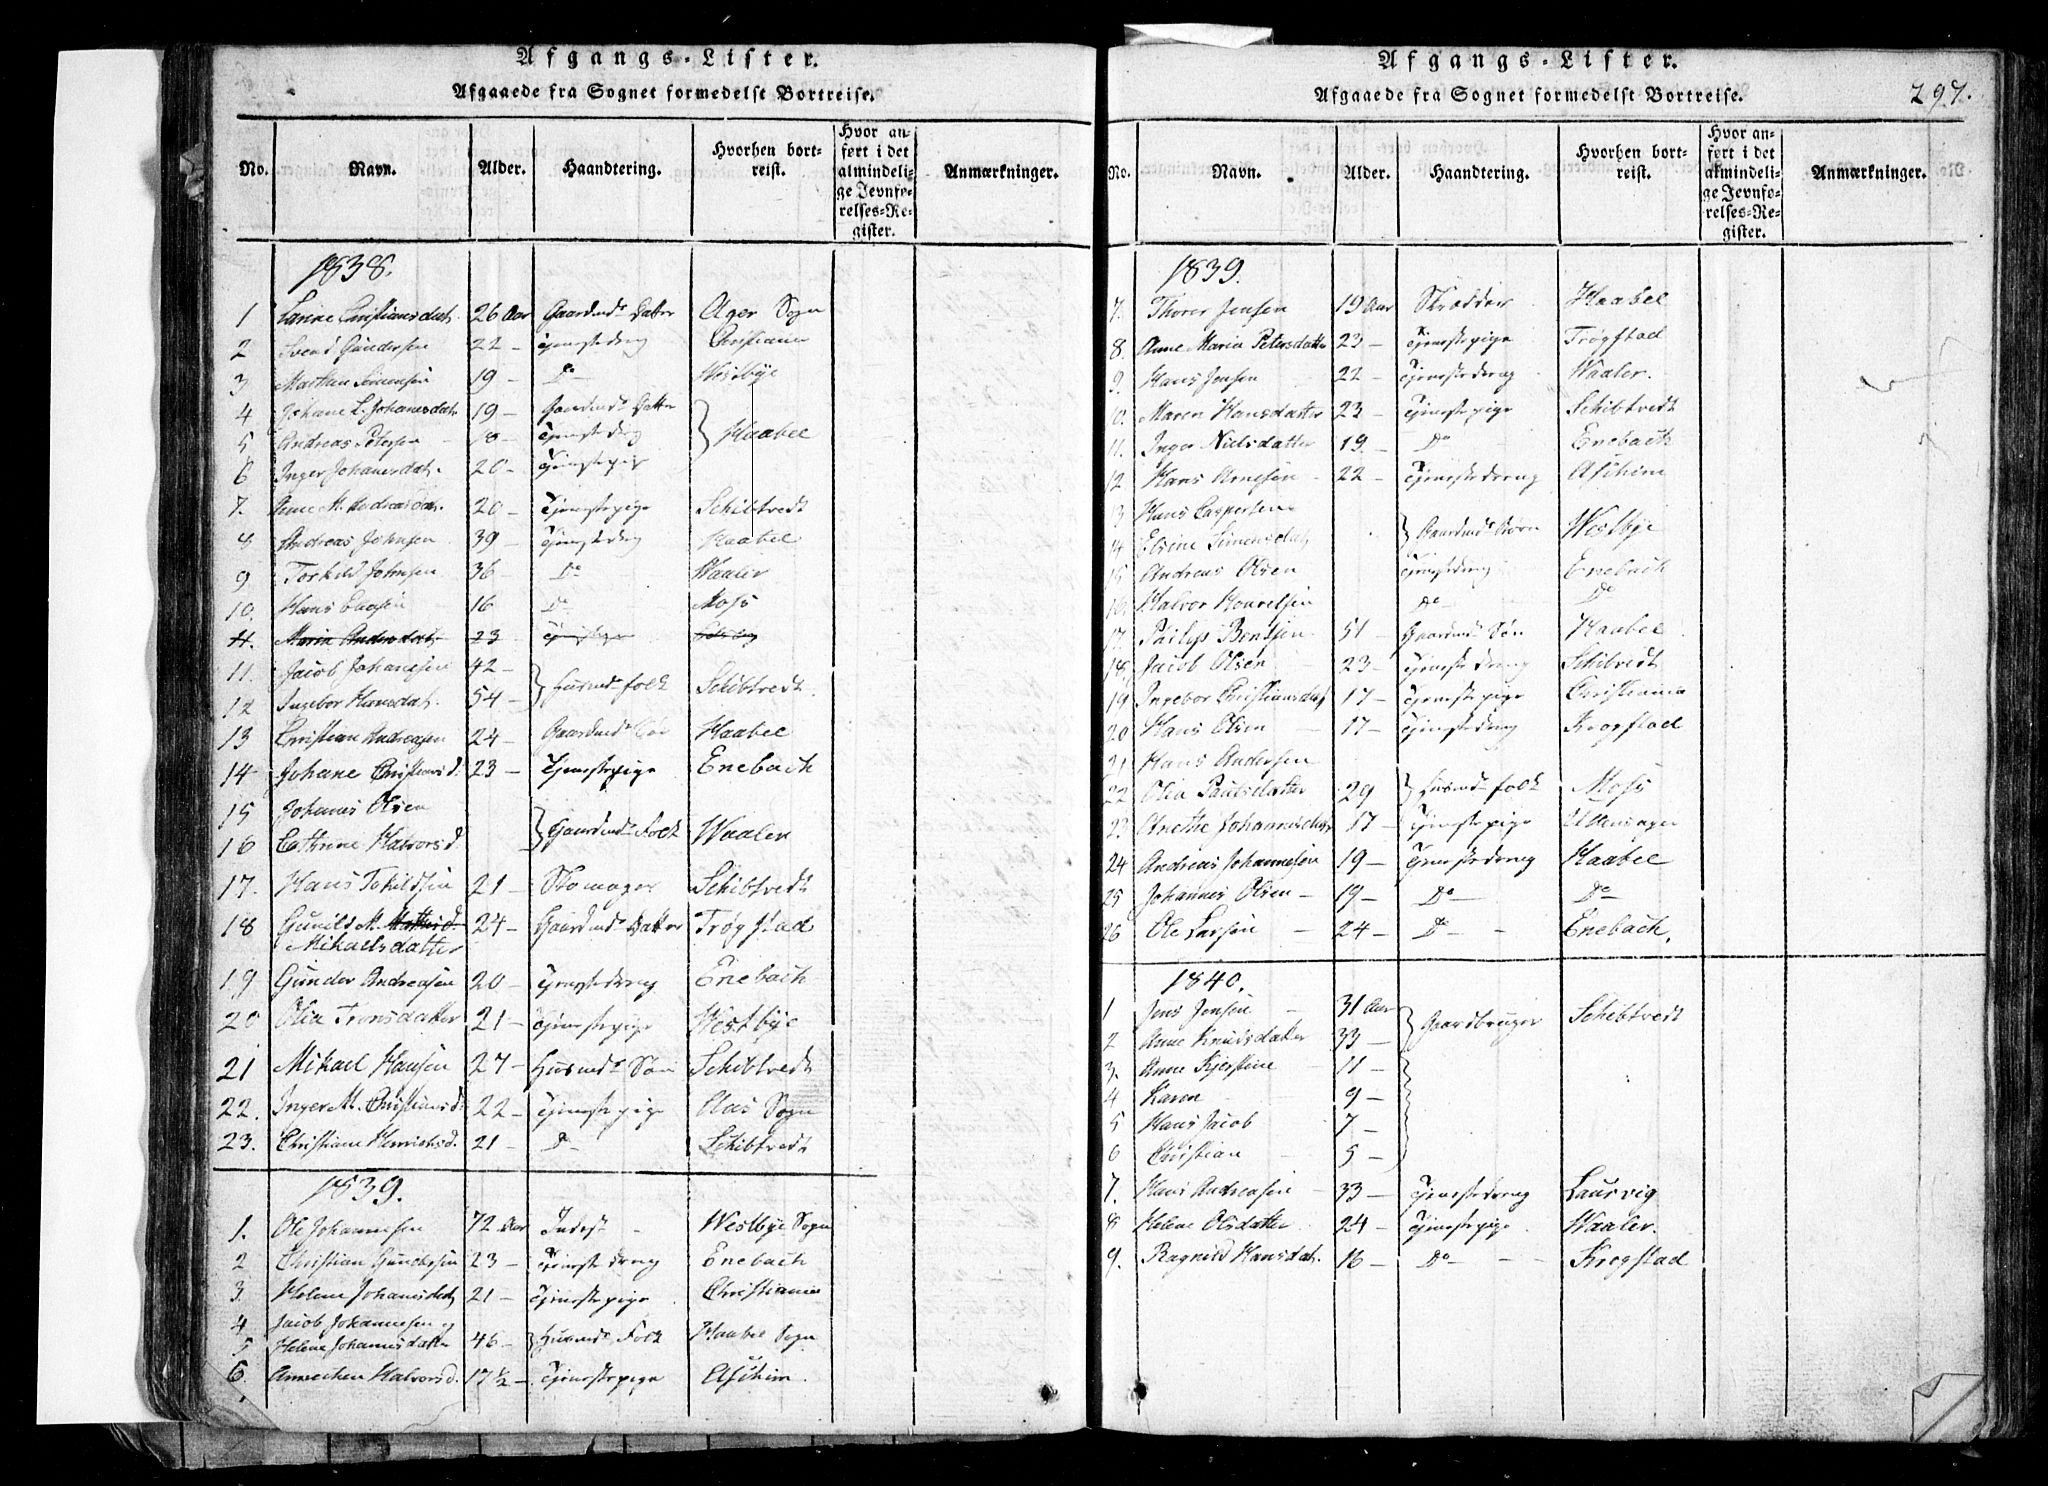 Afgangs-Lister.
Afgaaede fra Sognet formedelst Bortreise.
No. Navn. Alder. Haandtering. Hvorhen bortreist. Hvor anført i det almindelige Jevnførelses-Register. Anmærkninger.
1838.
1 Christiansdat. 26 Aar Gaardmds Datter Ager Sogn
2 Svend Gundersen 22 — Tjenestedreng Christiania
3 Mathias Simensen 19 — Do — Westbye
4 Johane L. Johanesdat. 19 — Gaardmds Datter
5 Andreas Petersen 18 — Tjenestedreng } Haabel
6 Inger Johanesdat. 20 — Tjenestepige
7. Anne M. Andreasdat. 20 — Tjenestepige Schibtvedt
8 Andreas Johnsen 39 — Tjenestedreng Haabel
9 Torkild Johnsen 36 — Do — Waaler
10. Hans 16 Do Moss
11. Maria Andersdat. 23 — Tjenestepige
11. Jacob Johanesen 42 —
12 Ingebor Hansdat. 54 — } Husmds folk Schibtvedt.
13 Christian Andreasen 24 — Gaardmds Søn Haabel
14 Johane Christiansd. 23 — Tjenestepige Enebach
15 Johanes Olsen
16 Cathrine Halvorsd. } Gaardmds Folk Waaler
17. Hans Tokildsen 21 — Skomager Schibtvedt
18 Gunild M. Mathisd. 24 — Gaardmds Datter Trøgstad
Mikaelsdatter
19 Gunder Andreasen 20 — Tjenestedreng Enebach
20 Olia Tronsdatter 21 — Tjenestepige Westbye
21 Mikael Hansen 27 — Husmds Søn Schibtvedt
22. Inger M. Christiansd. 22 — Tjenestepige Aas Sogn
23. Christiane Henrichsd. 21 — Do Schibtvedt
1839.
1. Ole Johannesen 72 Aar Inderst Westbye Sogn
2 Christian Gundersen 23 — Tjenestedreng Enebach
3. Helene Johanesdat. 21 — Tjenestepige Christiania
4 Jacob Johannesen og
5 Helene Johannesdatter 46 — } Husmds Folk Haabel Sogn
6. Annechen Halvorsd. 17½ — Tjenestepige Aschim.
Afgangs-Lister.
297.
Afgaaede fra Sognet formedelst Bortreise.
No. Navn. Alder. Haandtering. Hvorhen bortreist. Hvor anført i det almindelige Jevnførelses-Register. Anmærkninger.
1839.
7. Thorer Jensen 19 Aar Skrædder Haabel
8. Anne Maria Petersdatter 23 — Tjenestepige Trøgstad
9. Hans Jensen 22 — Tjenestedreng Waaler.
10. Maren Hansdatter 23 — Tjenestepige Schibtvedt
11. Inger Nielsdatter 19. — Do — Enebach
12 Hans Arnesen 22 — Tjenestedreng Aschim
13 Hans Caspersen
14 Elsine Simensdat. } Gaardmds Westbye
15 Andreas Olsen Tjenestedreng Enebach
16. Halvor Do — Do
17. Philip Bentsen 51 — Gaardmds Søn Haabel
18. Jacob Olsen 23 — Tjenestedreng Schibtvedt
19 Ingebor Christiansdat. 17 — Tjenestepige Christiania
20 Hans Olsen — 17 — Tjenestedreng Krogstad
21 Hans Andersen
22 Olia Paulsdatter 29 } Husmds folk Moss
23. Anethe Johannesdat. 17 — Tjenestepige Ullensager
24 Andreas Johannesen 19 — Tjenestedreng Haabel
25 Johannes Olsen — 19 — Do — Do —
26 Ole Larsen — 24 — Do — Enebach.
1840.
1 Jens Jensen — 31 Aar } Gaardbruger Schibtvedt
2 Anne Knudsdatter 33 —
3. Anne Kjerstine 11 —
4 Karen 9 —
5 Hans Jacob 7 —
6 Christian 5 —
7. Hans Andreasen 33 — Tjenestedreng Laurvig
8 Helene Olsdatter 24 — Tjenestepige Waaler.
9. Ragnild Hansdat. 16 — Do — Krogstad